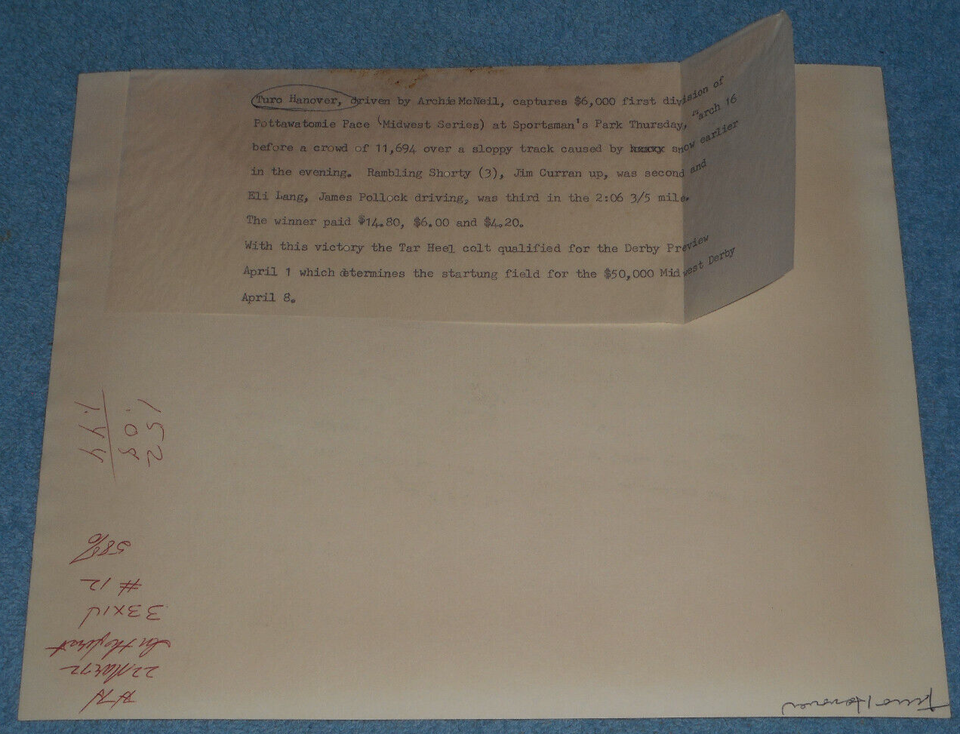 Turo Hanover, driven by Archie McNeil, captures $6,000 first division of
Pottawatomie Pace (Midwest Series) at Sportsman's Park Thursday, March 16
before a crowd of 11,694 over a sloppy track caused by snow earlier
in the evening. Rambling Shorty (3), Jim Curran up, was second and
Eli Lang, James Pollock driving, was third in the 2:06 3/5 mile.
The winner paid $14.80, $6.00 and $4.20.
With this victory the Tar Heel colt qualified for the Derby Preview
April 1 which determines the startung field for the $50,000 Midwest Derby
April 8.
152
.08
1.44
58%
# 12
33X14
22 Mar 72
Turo Hanover